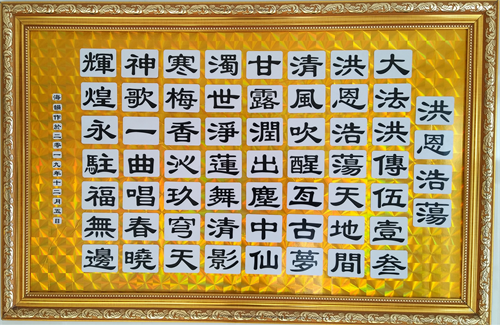 洪恩浩蕩
大法洪傳伍壹叁
洪恩浩蕩天地間
清風吹醒亙古夢
甘露潤出塵中仙
濁世淨蓮舞清影
寒梅香沁玖穹天
神歌一曲唱春曉
輝煌永駐福無邊
作於二零一九年十二月五日